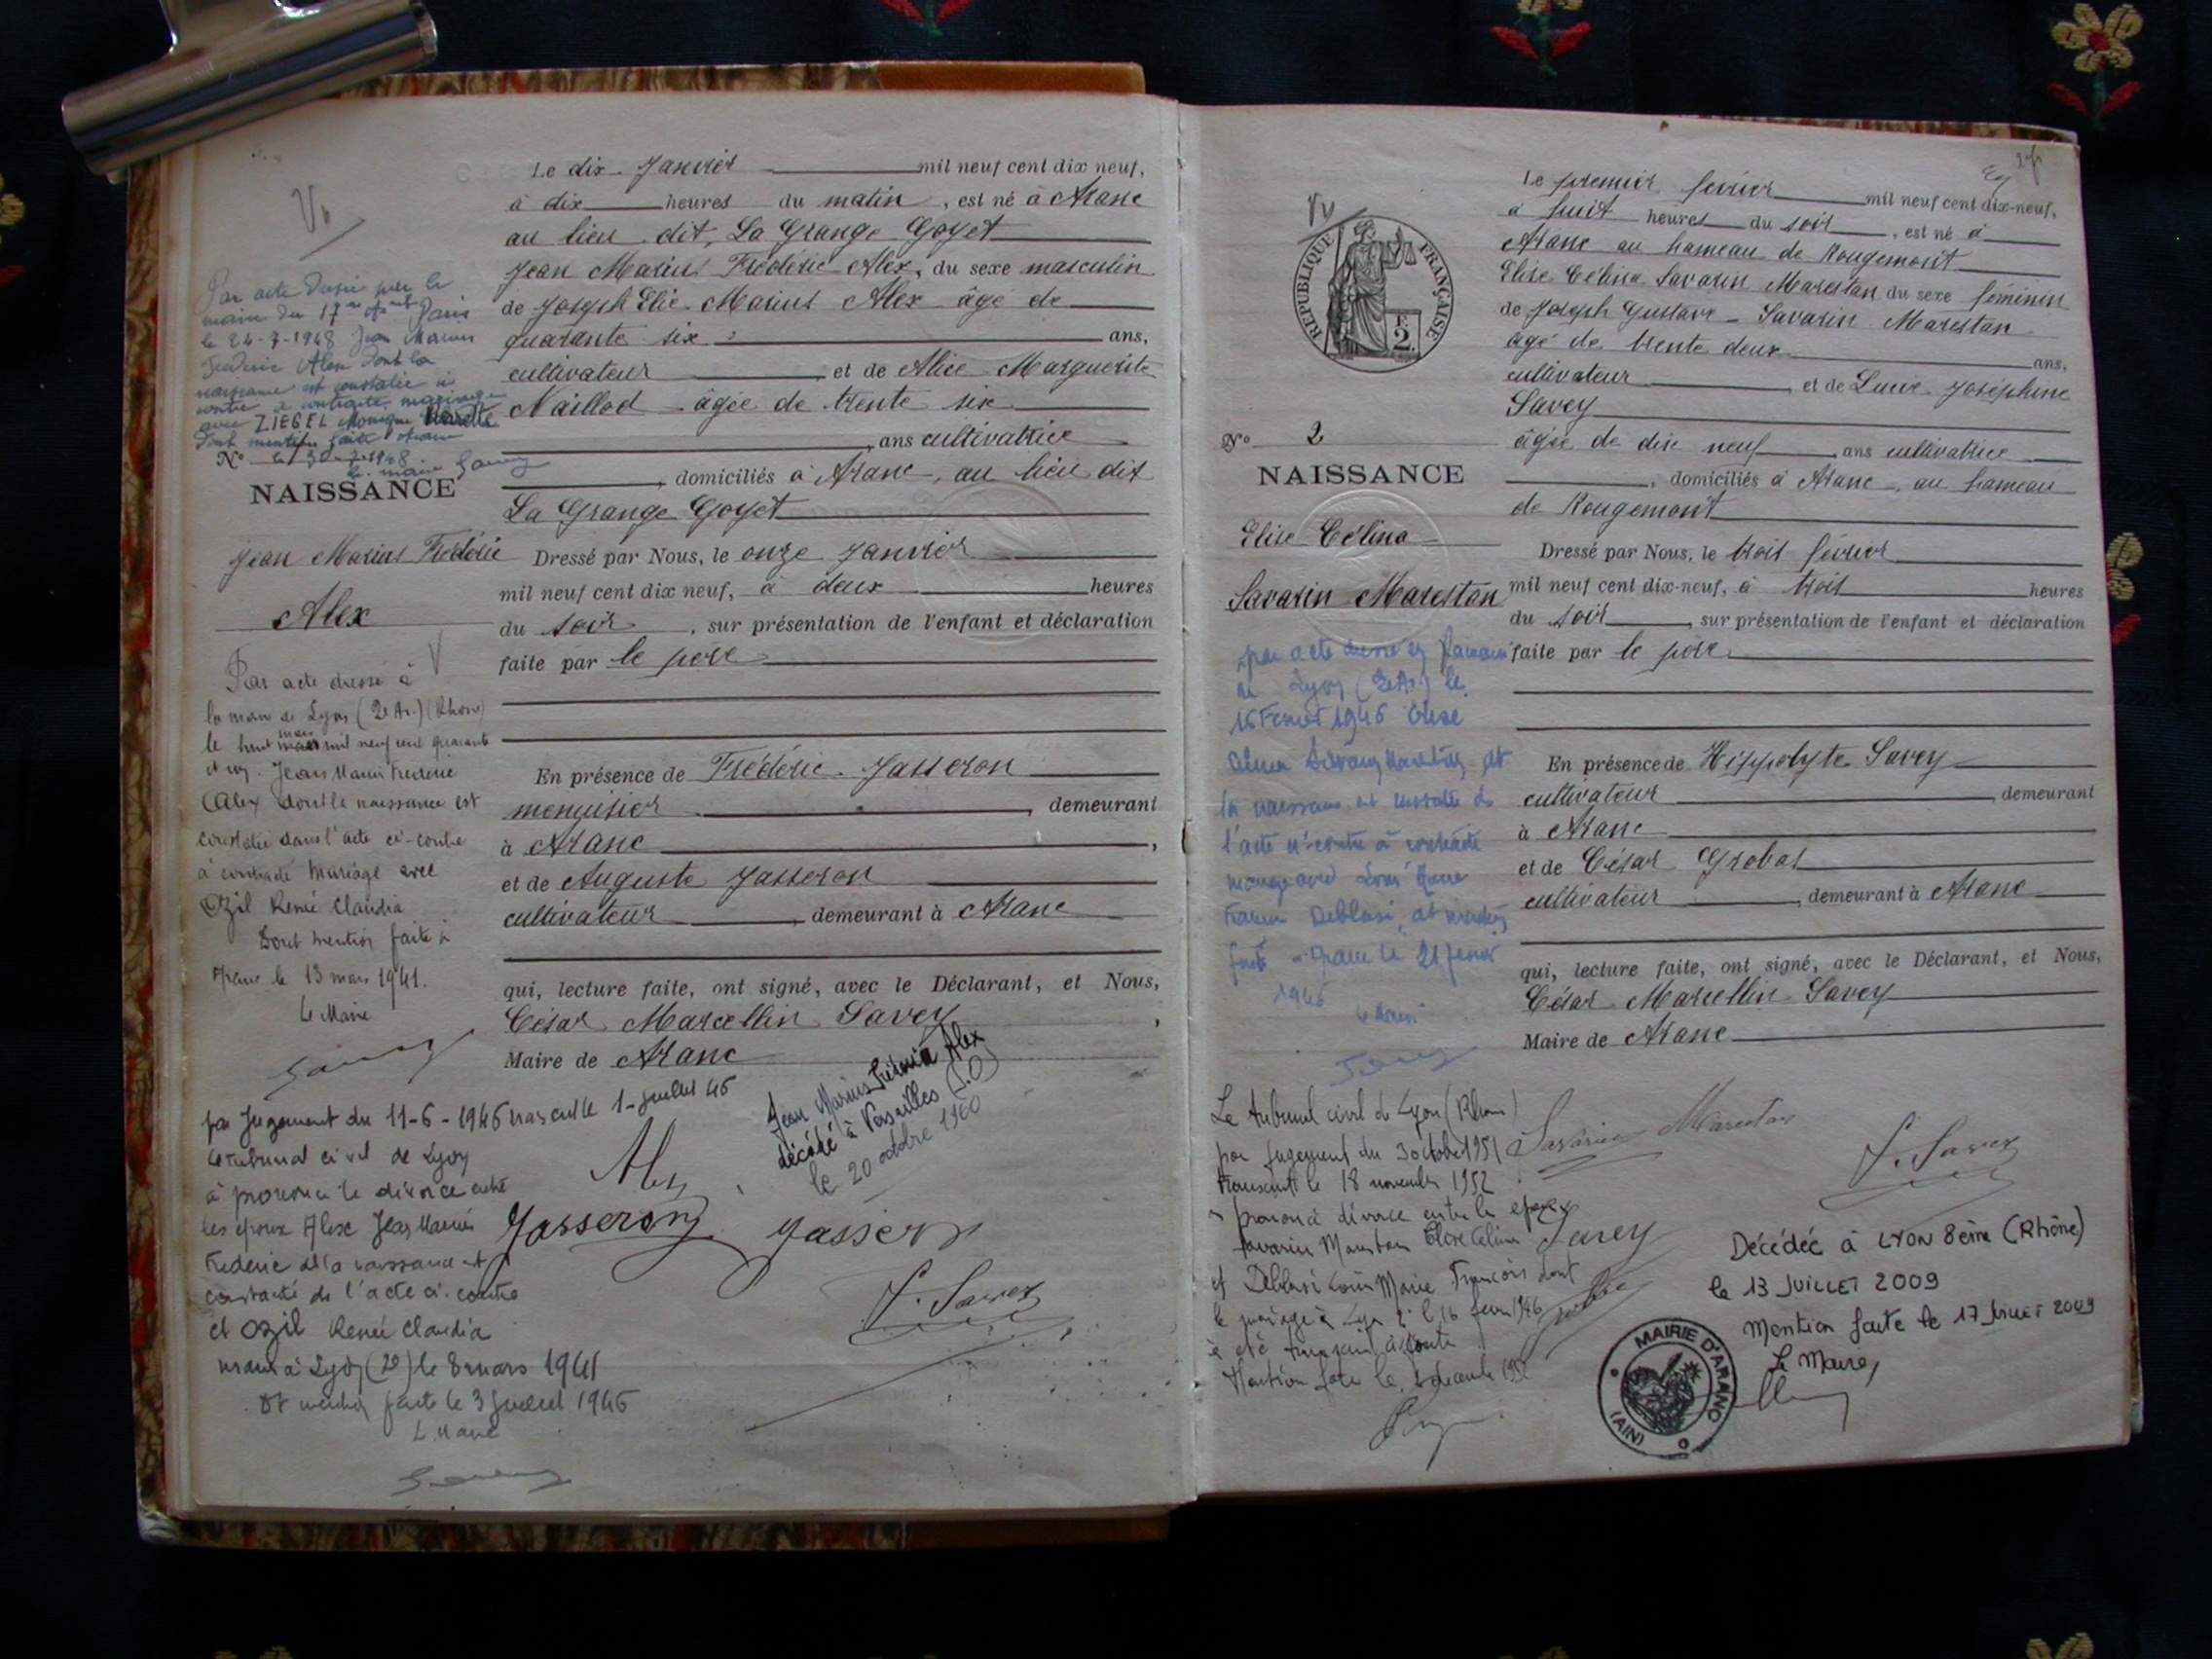 Le dix Janvier mil neuf cent dix neuf,
à dix heures du matin, est né à Aranc
au lieu dit, La Grange Goyet
Jean Marius Frédéric Alex, du sexe masculin
de Joseph Elie Marius Alex âgé de
quarante six ans,
cultivateur et de Alice Marguerite
Naillod âgée de trente six
ans cultivatrice
, domiciliés à Aranc, au lieu dit
La Grange Goyet
Dressé par Nous, le onze Janvier
mil neuf cent dix neuf, à deux heures
du soir, sur présentation de l'enfant et déclaration
faite par le père
En présence de Frédéric Jasseron
menuisier, demeurant
à Aranc,
et de Auguste Jasseron
cultivateur, demeurant à Aranc
qui, lecture faite, ont signé, avec le Déclarant, et Nous,
César Marcellin Savey,
Maire de Aranc
Par acte dressé par la
mairie du 17me Paris
le 24-7-1948 Jean Marius
Frédéric Alex dont la
naissance est constatée ci
contre a contracté mariage
avec ZIEGEL Monique
dont mention faite
le maire
N°
NAISSANCE
Jean Marius Frédéric
Alex
Par acte dressé à
la mairie de Lyon (2e Ar.) (Rhône)
le huit mars mil neuf cent quarante
et un. Jean Marius Frédéric
Alex dont la naissance est
constatée dans l'acte ci-contre
a contracté mariage avec
Ozil Renée Claudia
Dont mention faite à
Aranc le 13 mars 1941.
Le Maire
par Jugement du 11-6-1946 transcrit le 1-juillet 46
le Tribunal civil de Lyon
a prononcé le divorce entre
les époux Alex Jean Marius
Frédéric dt la naissance est
constatée de l'acte ci-contre
et Ozil Renée Claudia
mariés à Lyon (2e) le 8 mars 1941
Dt mention faite le 3 Juillet 1946
Le Maire
Jean Marius Frédéric Alex
décédé à Versailles (S.O)
le 20 octobre 1960
Alex
Jasseron Jasseron
C. Savey
Le premier février mil neuf cent dix-neuf,
à huit heures du soir, est né à
Aranc au hameau de Rougemont
Elise Célina Savarin Marestan du sexe féminin
de Joseph Gustave Savarin Marestan
âgé de trente deux ans,
cultivateur et de Lucie Joséphine
Savey
âgée de dix neuf ans cultivatrice
, domiciliés à Aranc, au hameau
de Rougemont
Dressé par Nous, le trois février
mil neuf cent dix-neuf, à trois heures
du soir, sur présentation de l'enfant et déclaration
faite par le père
En présence de Hippolyte Savey
cultivateur, demeurant
à Aranc
et de César Grobas
cultivateur, demeurant à Aranc
qui, lecture faite, ont signé, avec le Déclarant, et Nous,
César Marcellin Savey
Maire de Aranc
RÉPUBLIQUE FRANÇAISE
F.
2.
N° 2
NAISSANCE
Elise Célina
Savarin Marestan
par acte dressé en
de Lyon (2e Ar.) le
16 Février 1946 Elise
Célina Savarin Marestan dt
la naissance est constatée de
l'acte ci-contre a contracté
mariage avec Louis Marie
Deblasi, dt mention
faite à Aranc le 21 février
1946 le Maire
Le tribunal civil de Lyon (Rhône)
par jugement du 3 octobre 1951
transcrit le 18 novembre 1952
a prononcé divorce entre les époux
Savarin Marestan Elise Célina
et Deblasi Louis Marie François dont
le mariage à Lyon 2e le 16 février 1946
a été ci contre
Mention faite le décembre 1952
Savarin Marestan
C. Savey
Savey
Décédée à LYON 8ème (Rhône)
le 13 JUILLET 2009
Mention faite le 17 Juillet 2009
Le Maire,
MAIRIE D'ARANC
(AIN)